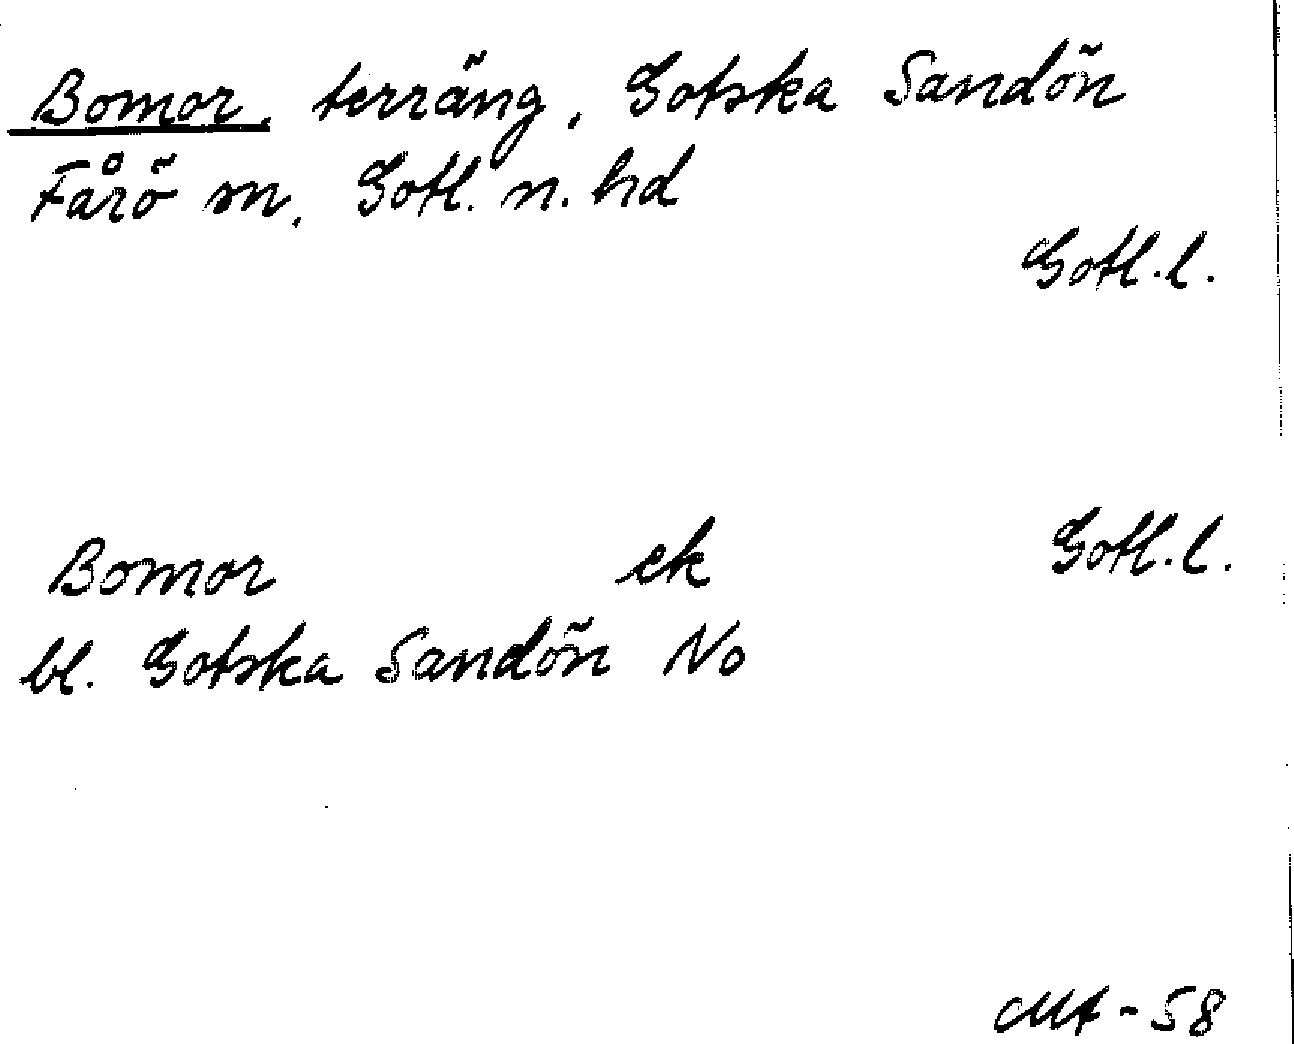 Bomor, terräng, Gotska Sandön
Fårö sn, Gotl. n. hd
Gotl. l.
Bomor ek Gotl. l.
bl. Gotska Sandön No
-58